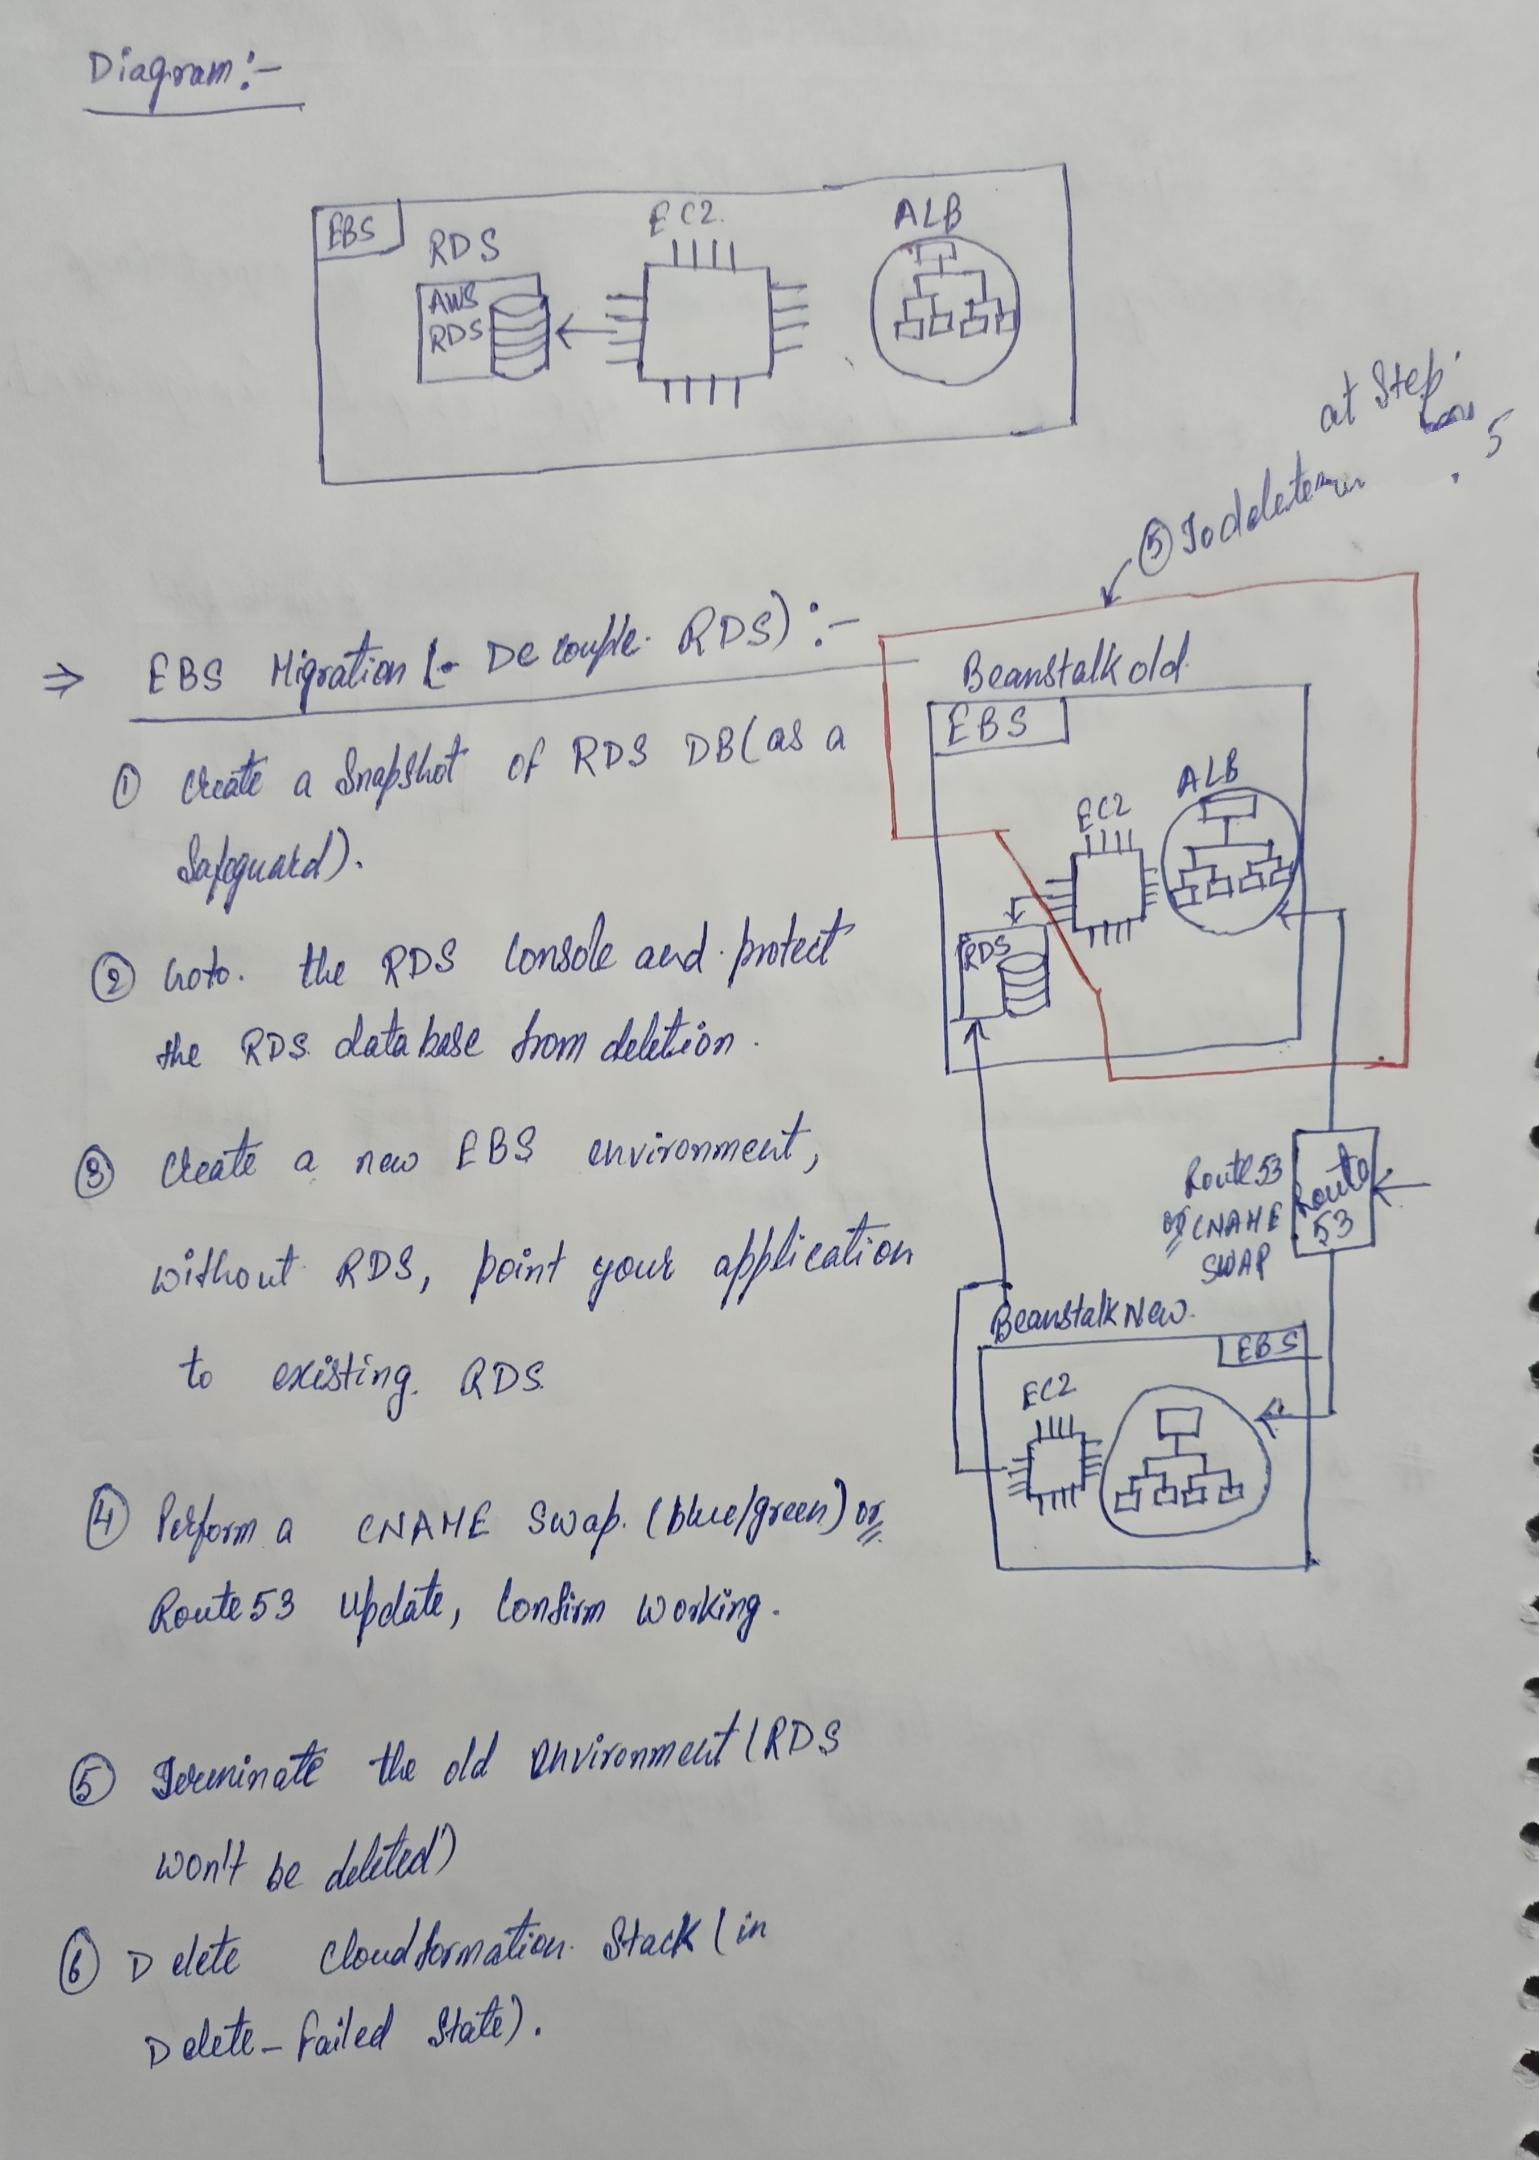 Diagram:-
EBS
RDS
EC2.
ALB
AWS
RDS
at Step
5
⑤ To delete
⇒ EBS Migration (- Decouple RDS) :-
① Create a Snapshot of RDS DB (as a
Safeguard).
② Goto. the RDS Console and protect
the RDS database from deletion.
③ Create a new EBS environment,
without RDS, point your application
to existing. RDS
④ Perform a CNAME Swap. (blue/green) or
Route 53 update, Confirm working.
⑤ Terminate the old environment (RDS
won't be deleted)
⑥ Delete Cloudformation Stack (in
Delete-failed State).
Beanstalk old.
EBS
ALB
EC2
RDS
Route 53
or CNAME
SWAP
Route
53
Beanstalk New.
EBS
EC2